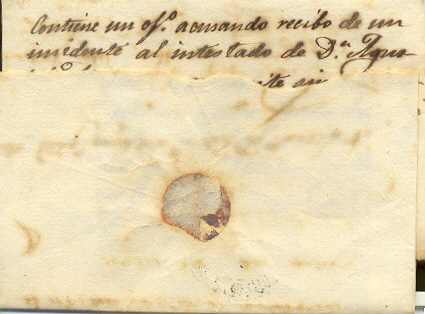 Contiene un of.º acusando recibo de un
incidente al intestado de D.ª Agus